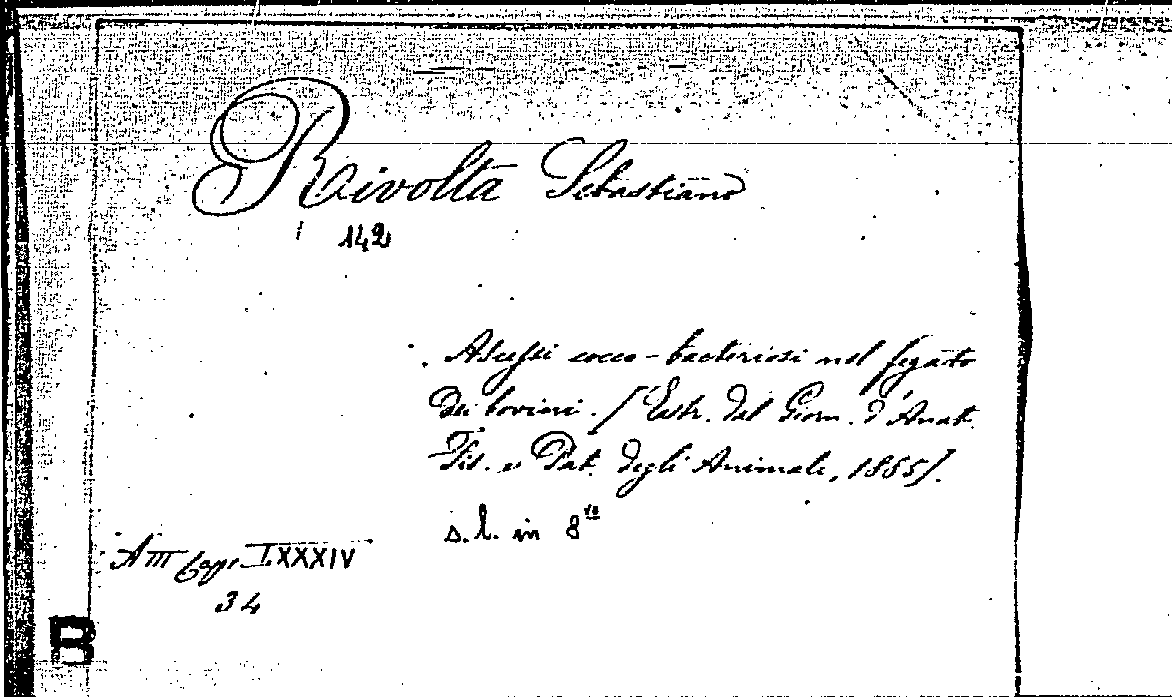 Rivolta Sebastiano
142
Ascessi cocco-bacteriosi nel fegato
dei bovini. [Estr. dal Giorn. d'Anat.
Fis. e Pat. degli Animali, 1885].
s.l. in 8°
A III LXXXIV
34
B